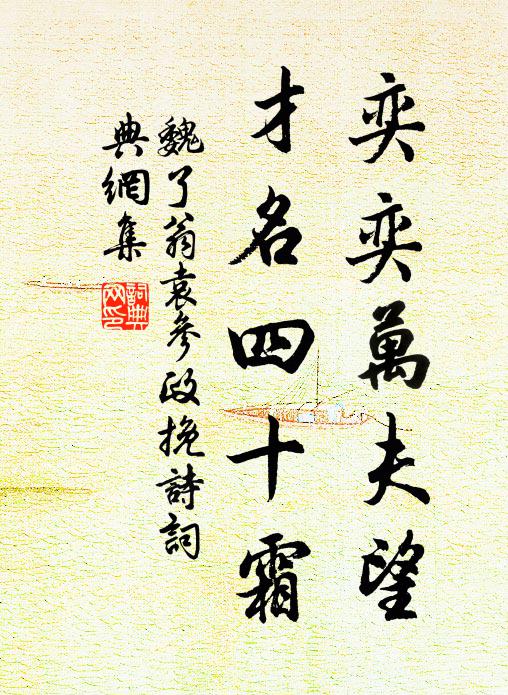 奕奕萬夫望
才名四十霜
魏了翁袁參政挽詩詞
典網集
詞典
网印